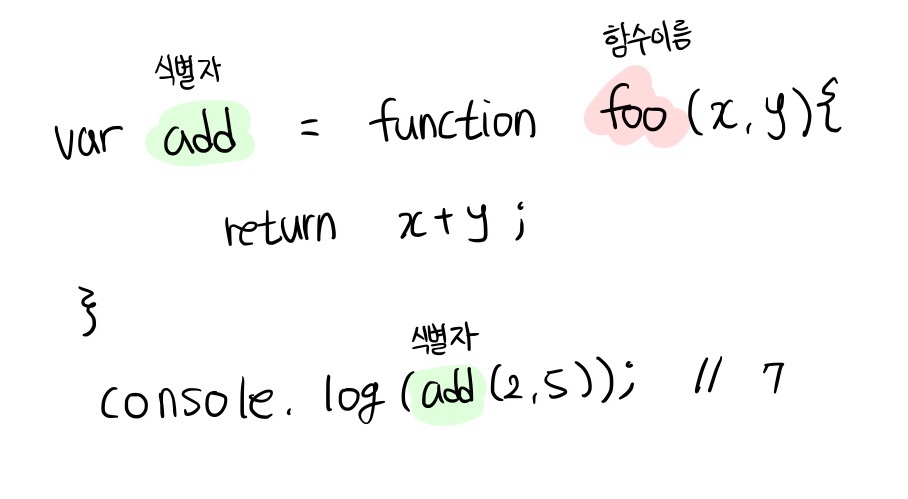 식별자 함수이름
var add = function foo (x, y){
return x+y ;
}
식별자
console. log (add (2,5)); // 7